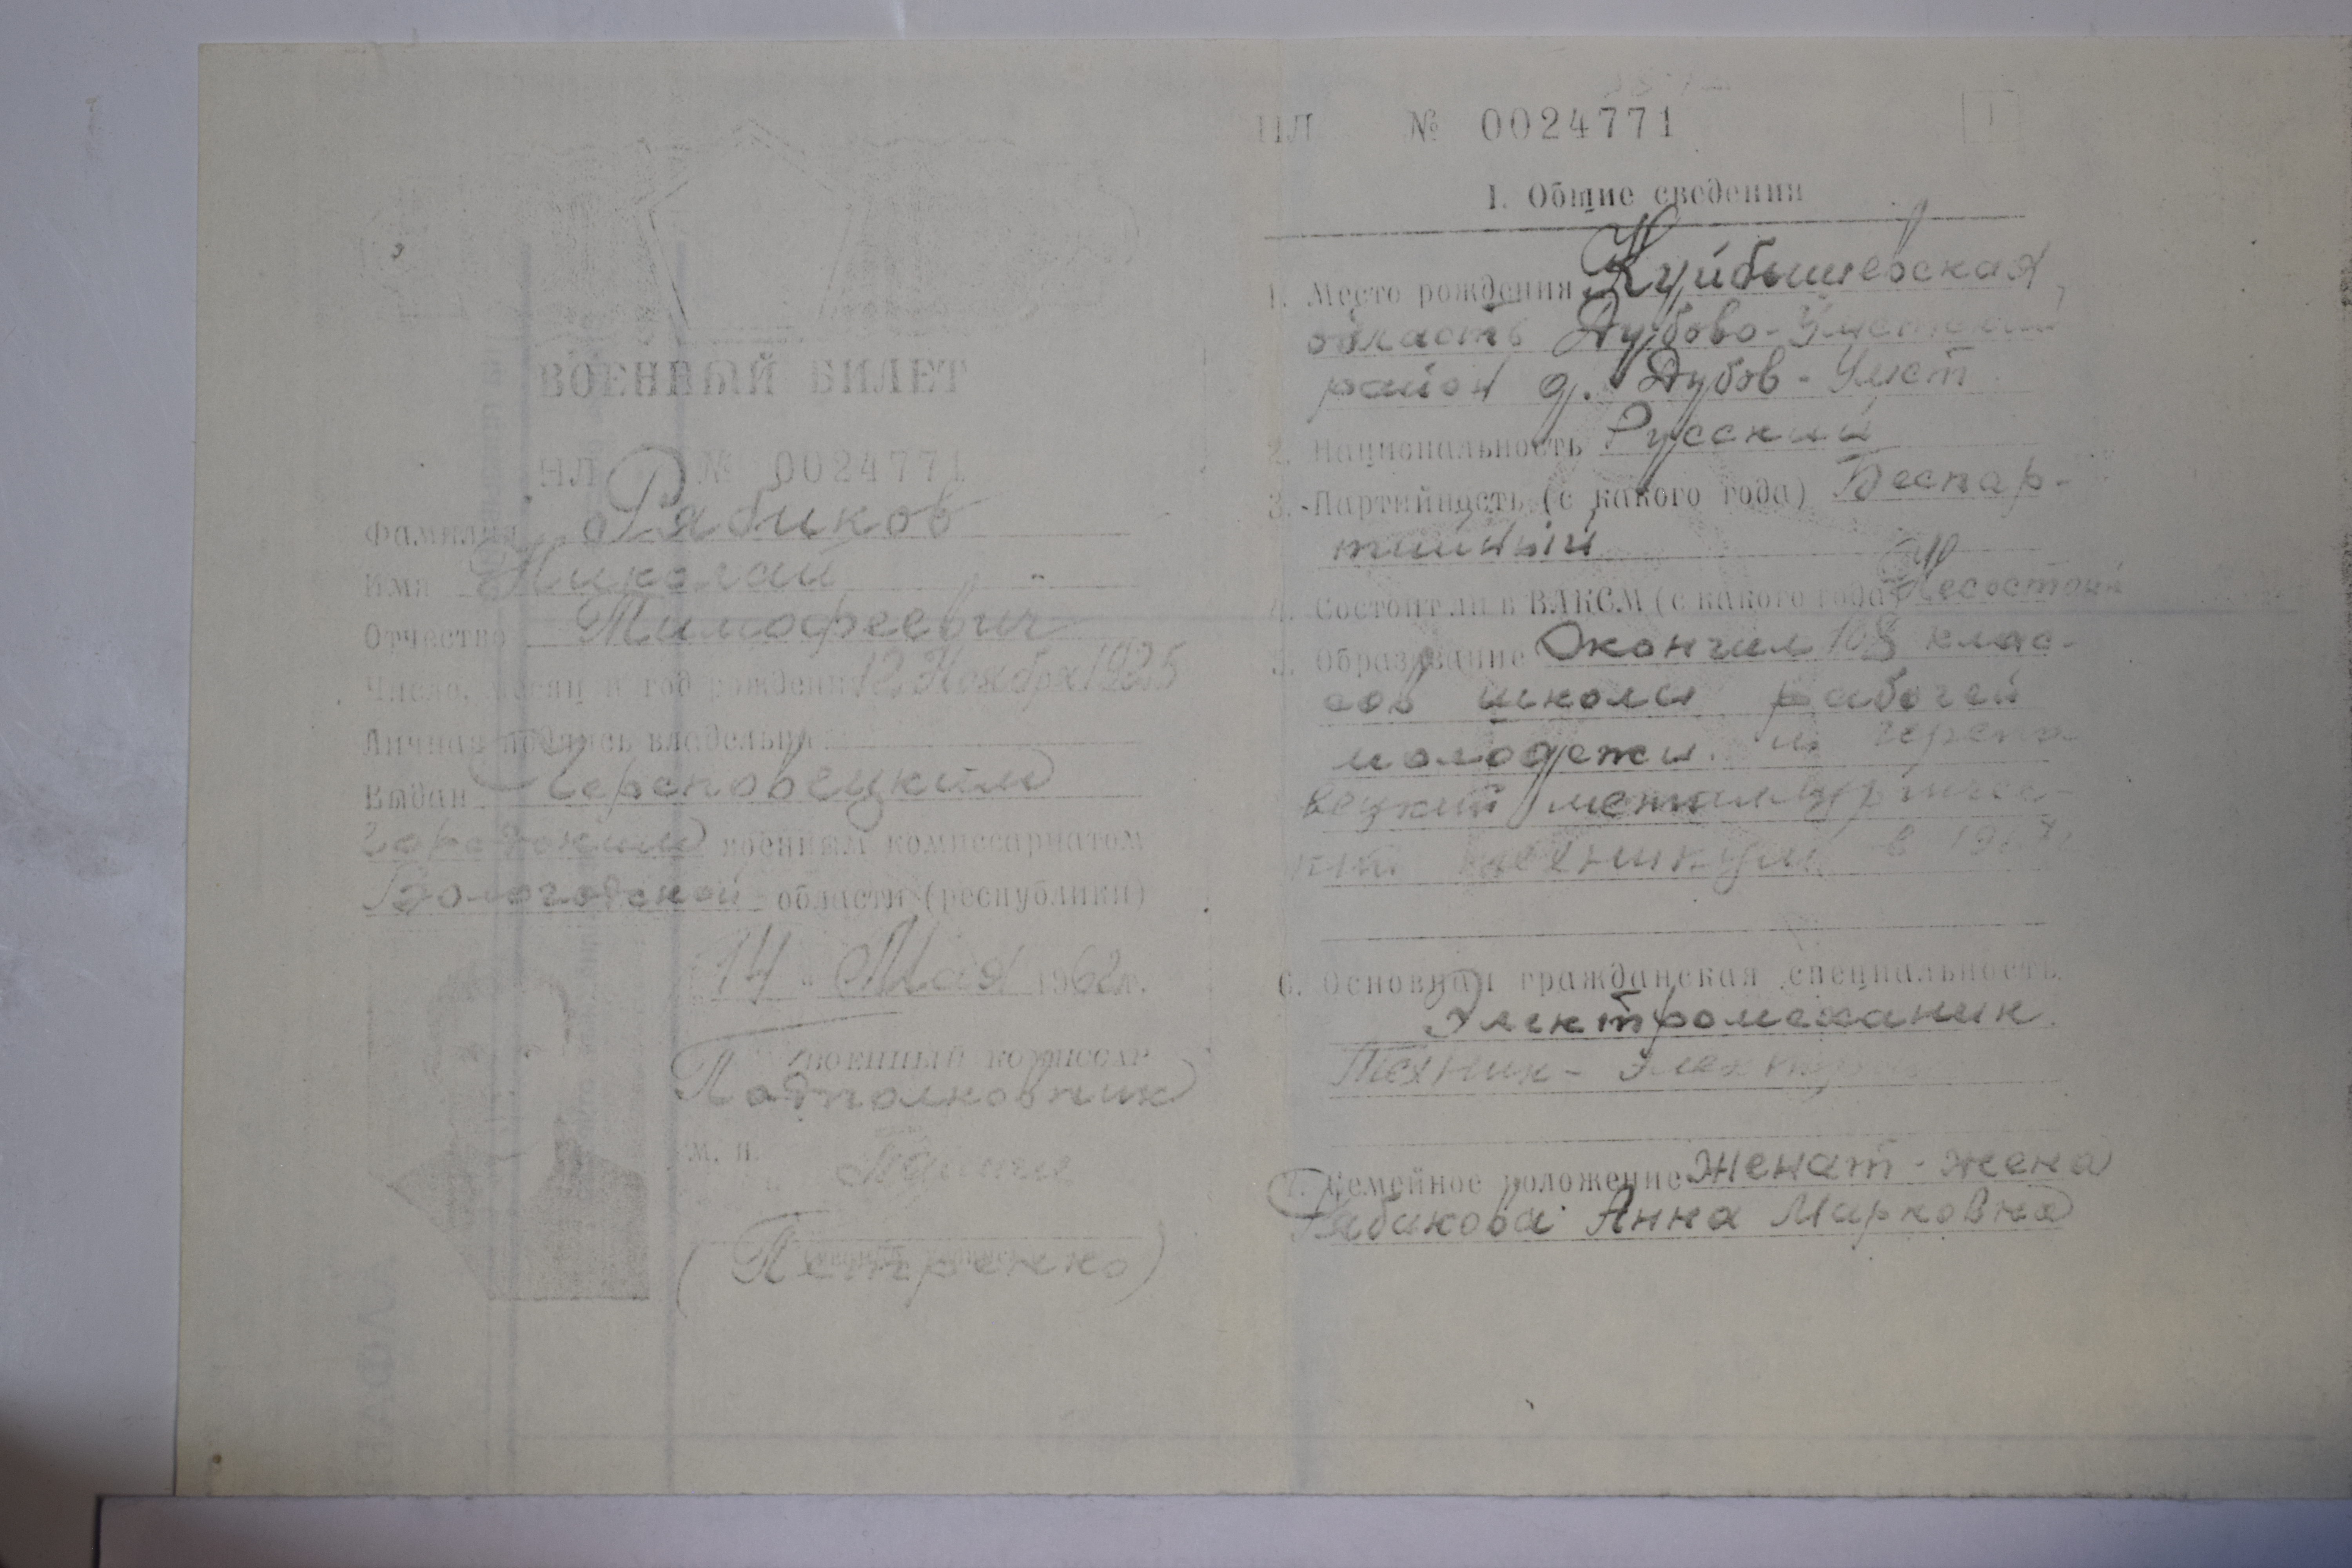 ВОЕННЫЙ БИЛЕТ
НЛ № 0024771
Фамилия Рябиков
Имя Николай
Отчество Тимофеевич
Число, месяц и год рождения 12 Ноября 1925
Личная подпись владельца
Выдан Череповецким
Городским военным комиссариатом
Вологодской области (республики)
"14" Мая 1962 г.
Военный комиссар
Подполковник
м. п.
(Петренко)
НЛ № 0024771
1
I. Общие сведения
1. Место рождения Куйбышевская,
область Дубово-Уметский
район д. Дубов-Умет
2. Национальность Русский
3. Партийность (с какого года) Беспар-
тийный
4. Состоит ли в ВЛКСМ (с какого года) Не состоит
5. Образование Окончил 10 клас-
сов школы рабочей
молодежи. и Черепо
вецкий металлургичес-
кий техникум в
6. Основная гражданская специальность
Электромеханик
Техник-электрик
7. Семейное положение женат - жена
Рябикова Анна Марковна